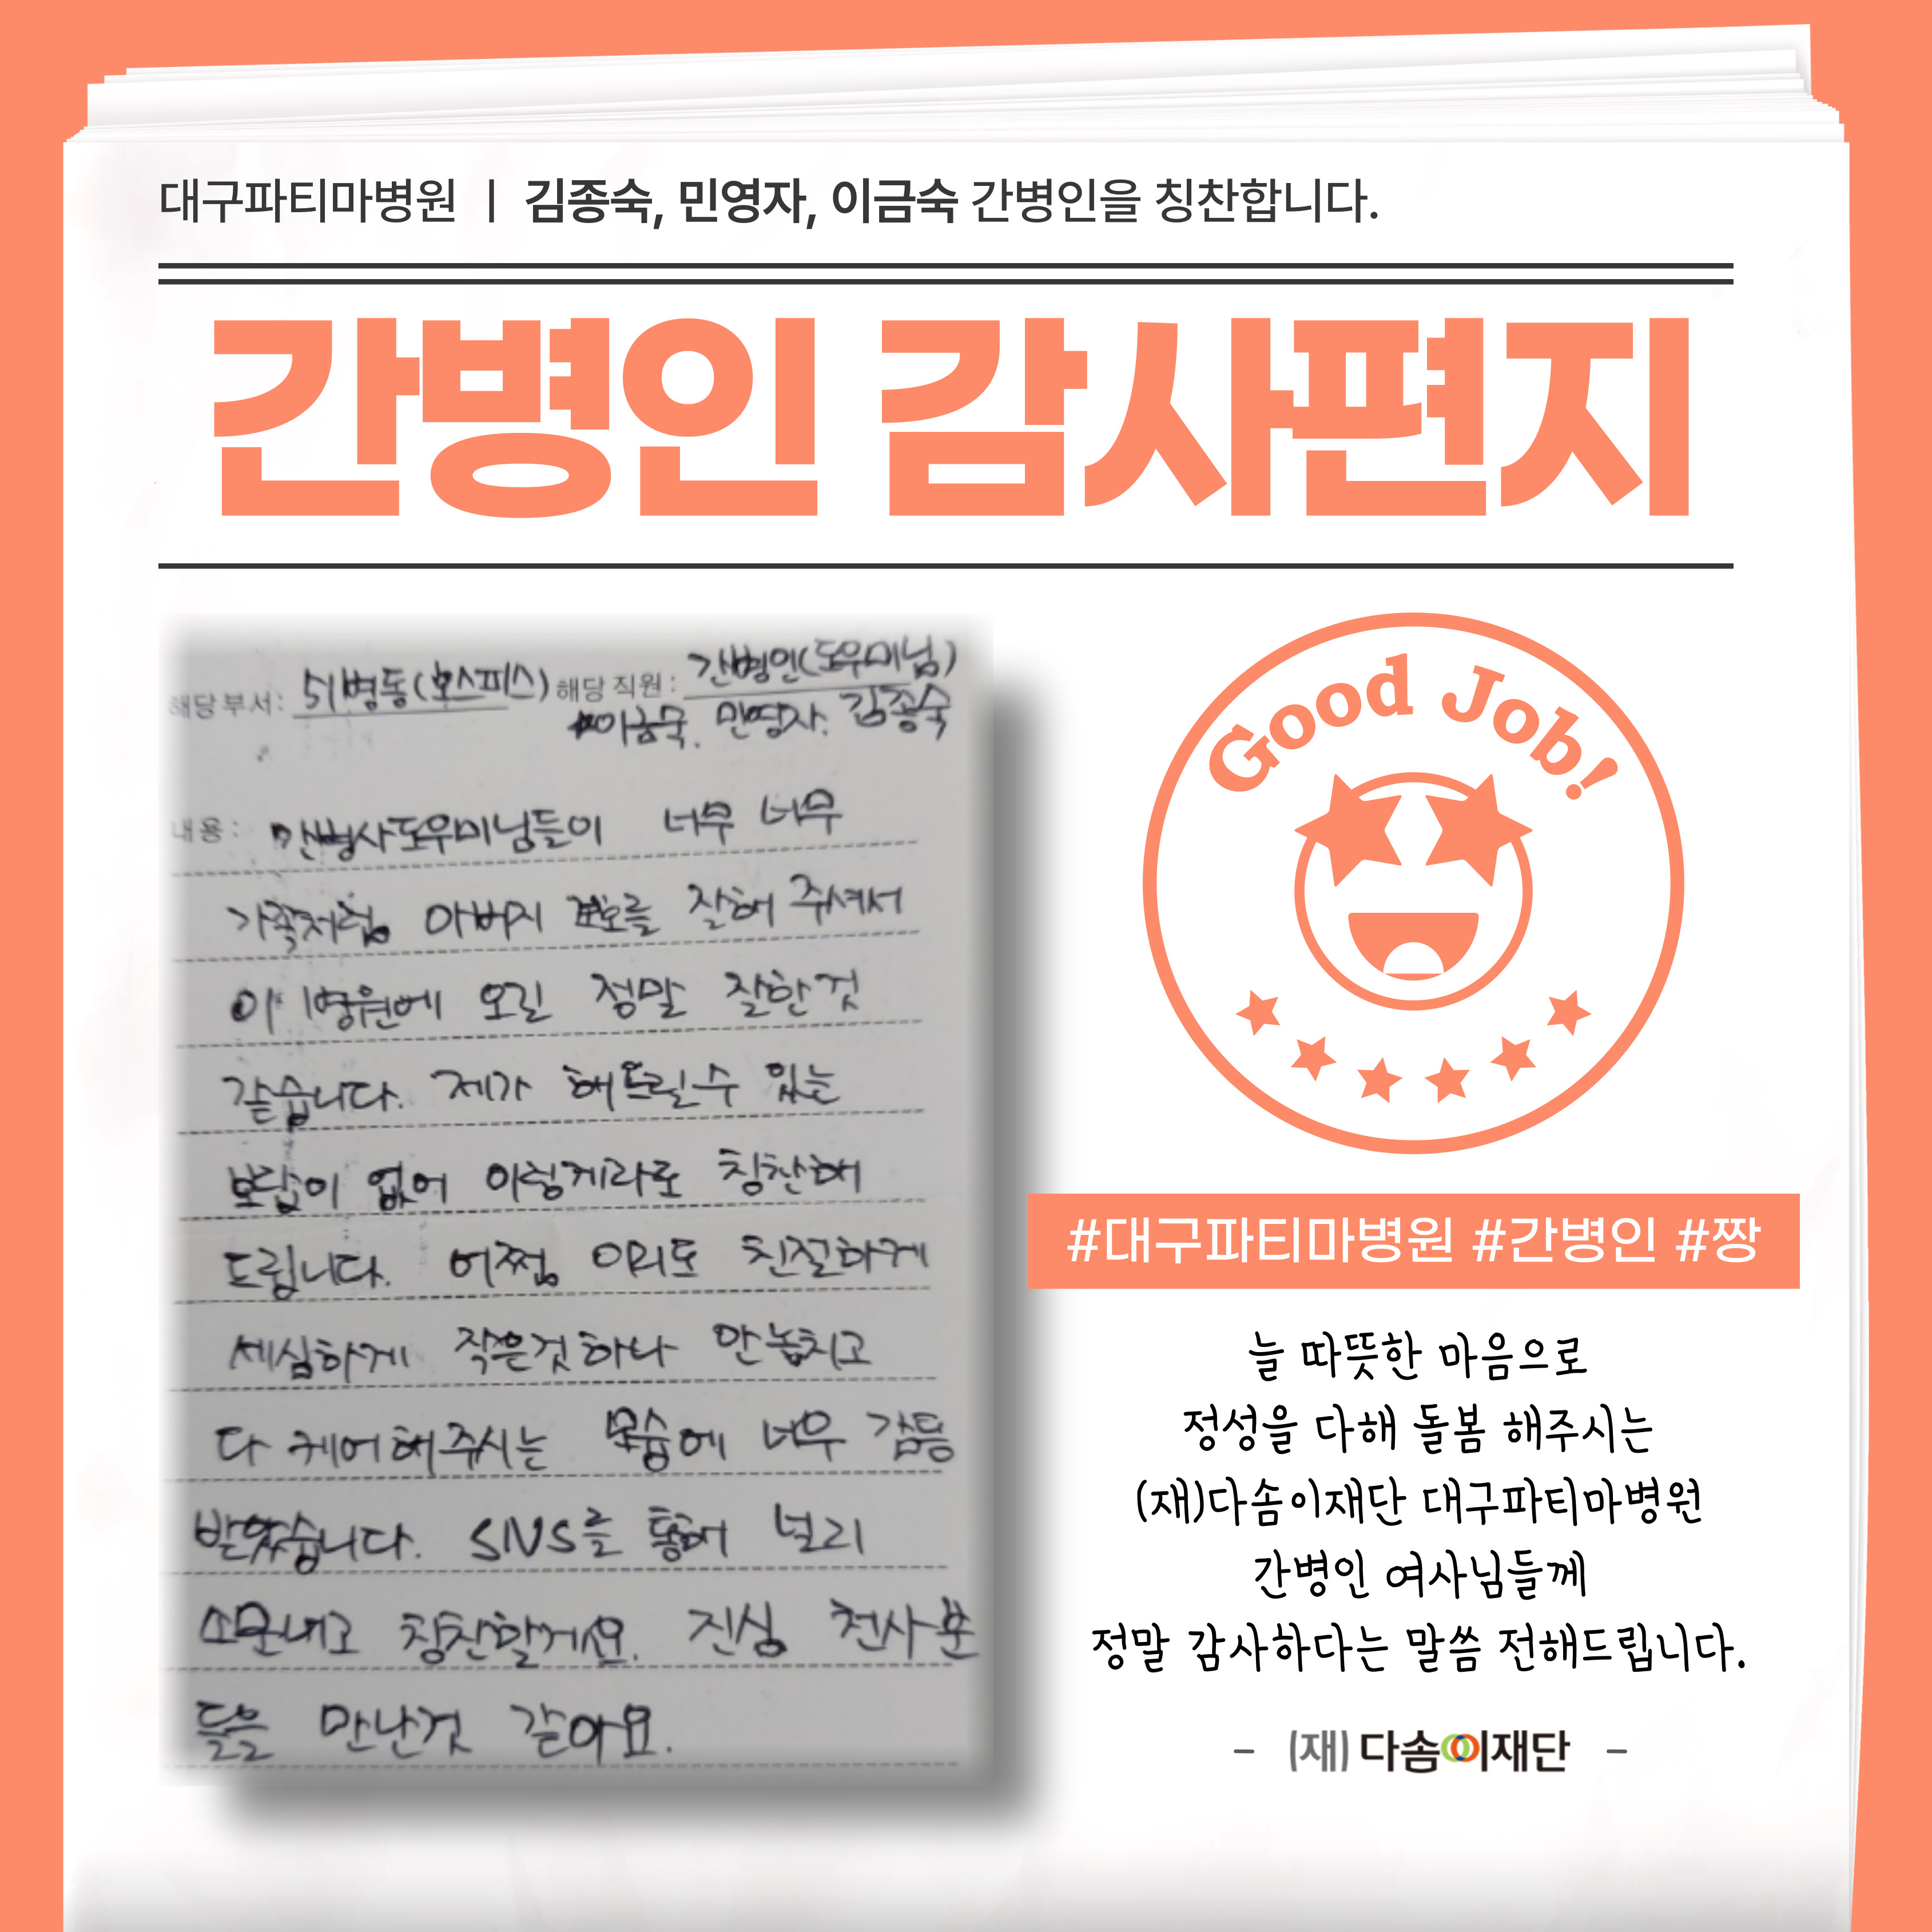 대구파티마병원 | 김종숙, 민영자, 이금숙 간병인을 칭찬합니다.
간병인 감사편지
해당부서: 51병동(호스피스) 해당 직원: 간병인(도우미님)
이금숙. 민영자. 김종숙
내용: 간병사도우미님들이 너무 너무
가족처럼 아버지 를 잘해 주셔서
이 병원에 오길 정말 잘한것
같습니다. 제가 해드릴수 있는
보답이 없어 이렇게라도 칭찬해
드립니다. 어쩜 이리도 친절하게
세심하게 작은것하나 안놓치고
다 케어해주시는 모습에 너무 감동
받았습니다. SNS를 통해 널리
소문내고 칭찬할게요. 진심 천사분
들을 만난것 같아요.
Good Job!
#대구파티마병원 #간병인 #짱
늘 따뜻한 마음으로
정성을 다해 돌봄 해주시는
(재)다솜이재단 대구파티마병원
간병인 여사님들께
정말 감사하다는 말씀 전해드립니다.
- (재) 다솜이재단 -